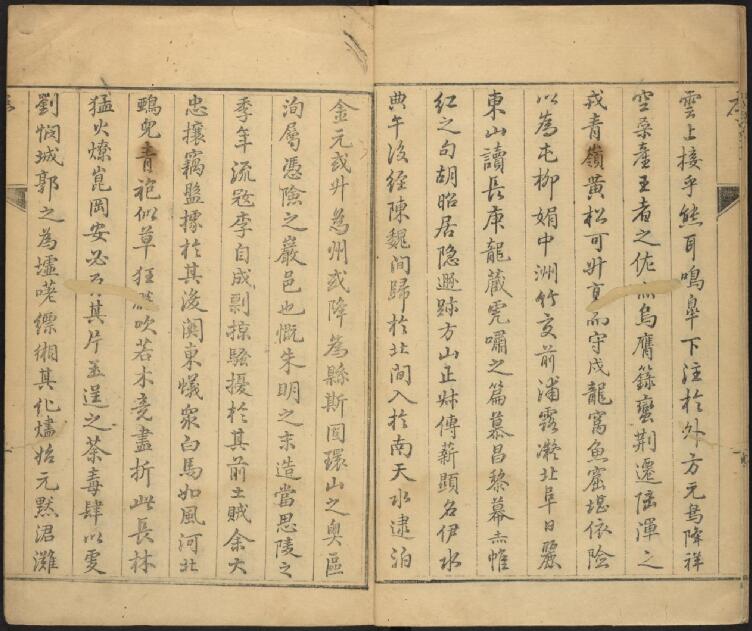 雲上接乎熊耳鳴皐下注於外方元鳥降祥
空桑產王者之佐赤烏膺籙蠻荆遷陸渾之
戎青嶺黃松可升亨而守戍龍窩魚窟堪依險
以為屯柳娟中洲竹交前浦露凝北阜日麗
東山讀長庚龍藏虎嘯之篇慕昌黎幕赤帷
紅之句胡昭居隐遯跡方山正姝傳薪顕名伊水
典午後經陳魏间歸於北间入於南天水逮泊
金元或升為州或降為縣斯固環山之奥區
洵屬憑險之巖邑也慨朱明之末造當思陵之
季年流寇李自成剽掠騷擾於其前土賊余大
忠攘竊盬據於其後関東蟻眾白馬如風河北
鴟兒青袍似草狂 吹若木竞盡折此長林
猛火燎崑岡安必 其片玉逞之荼毒肆以虔
劉憫城郭之為墟嗟縹緗其化燼始元黙涒灘